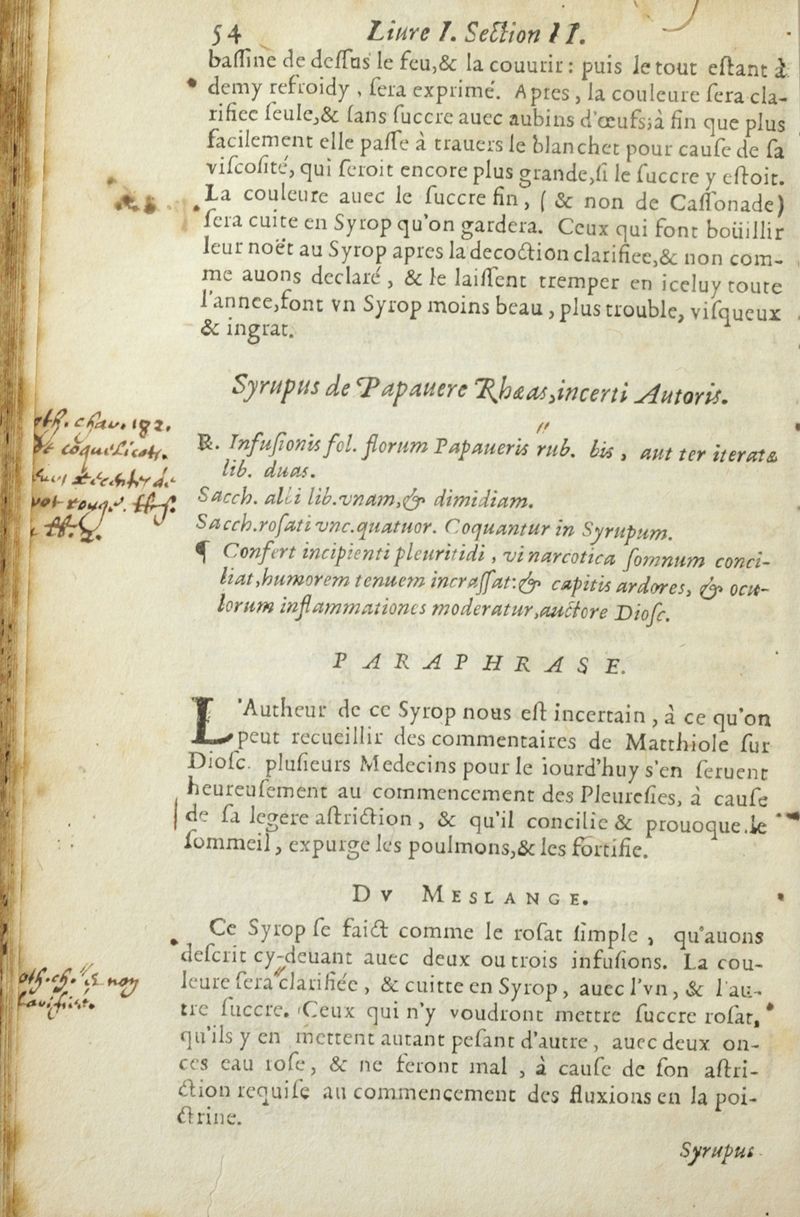 54 Liure I. Section II.
bassine de dessus le feu,& la couurir : puis le tout estant à
demy refroidy , sera exprimé. Apres , la couleure sera cla-
rifiee seule,& sans succre auec aubins d'œufs;à fin que plus
facilement elle passe à trauers le blanchet pour cause de sa
viscosité, qui seroit encore plus grande,si le succre y estoit.
La couleure auec le succre fin, ( & non de Cassonade)
sera cuite en Syrop qu'on gardera. Ceux qui font boüillir
leur noët au Syrop apres la decoction clarifiee,& non com-
me auons declaré , & le laissent tremper en iceluy toute
l'annee,font vn Syrop moins beau , plus trouble, visqueux
& ingrat.
Syrupus de Papauere Rhæas,incerti Autoris.
℞. Infusionis fol. florum Papaueris rub. bis , aut ter iteratæ
lib. duas.
Sacch. albi lib.vnam,& dimidiam.
Sacch.rosati vnc.quatuor. Coquantur in Syrupum.
¶ Confert incipienti pleuritidi , vi narcotica somnum conci-
liat,humorem tenuem incrassat:& capitis ardores, & ocu-
lorum inflammationes moderatur,auctore Diosc.
PARAPHRASE.
L'Autheur de ce Syrop nous est incertain , à ce qu'on
peut recueillir des commentaires de Matthiole sur
Diosc. plusieurs Medecins pour le iourd'huy s'en seruent
heureusement au commencement des Pleuresies, à cause
de sa legere astriction , & qu'il concilie & prouoque le
sommeil , expurge les poulmons,& les fortifie.
DV MESLANGE.
Ce Syrop se faict comme le rosat simple , qu'auons
descrit cy-deuant auec deux ou trois infusions. La cou-
leure sera clarifiée , & cuitte en Syrop , auec l'vn , & l'au-
tre succre. Ceux qui n'y voudront mettre succre rosat,
qu'ils y en mettent autant pesant d'autre , auec deux on-
ces eau rose, & ne feront mal , à cause de son astri-
ction requise au commencement des fluxions en la poi-
ctrine.
Syrupus